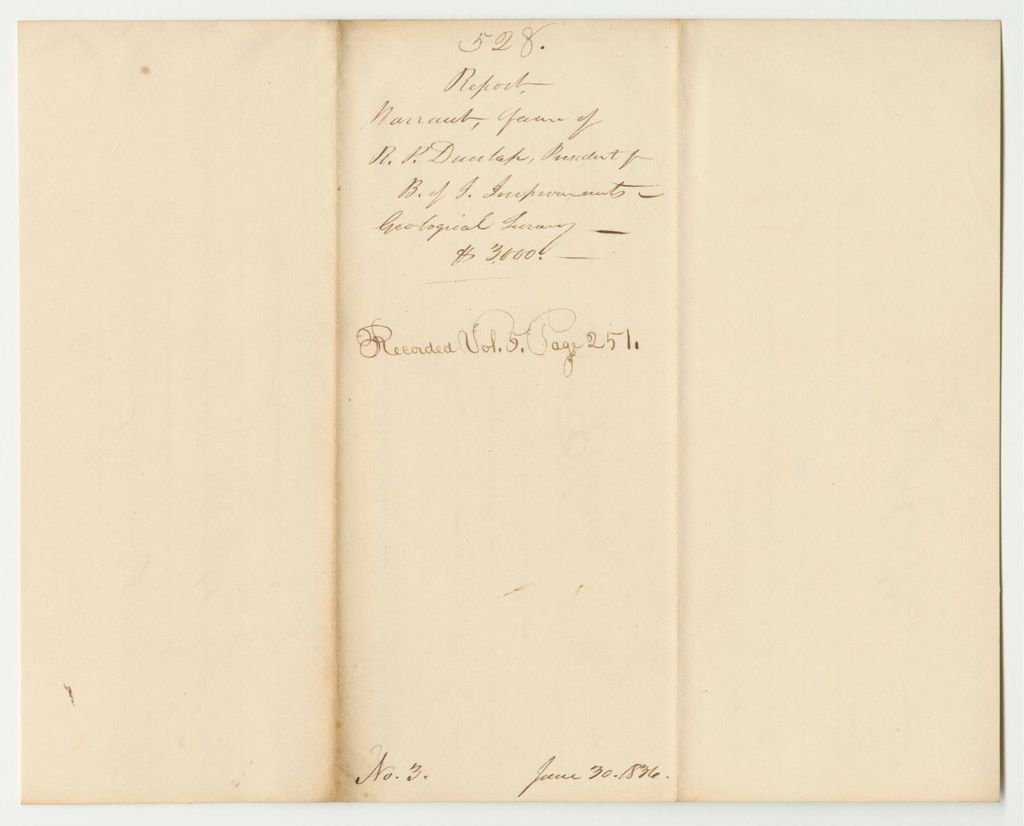 528.
Report
Warrant, favor of
R. P. Dunlap, President of
B. of I. Improvements —
Geological Survey —
$ 3,000. —
Recorded Vol. 5. Page 251.
No. 3.
June 30. 1836.